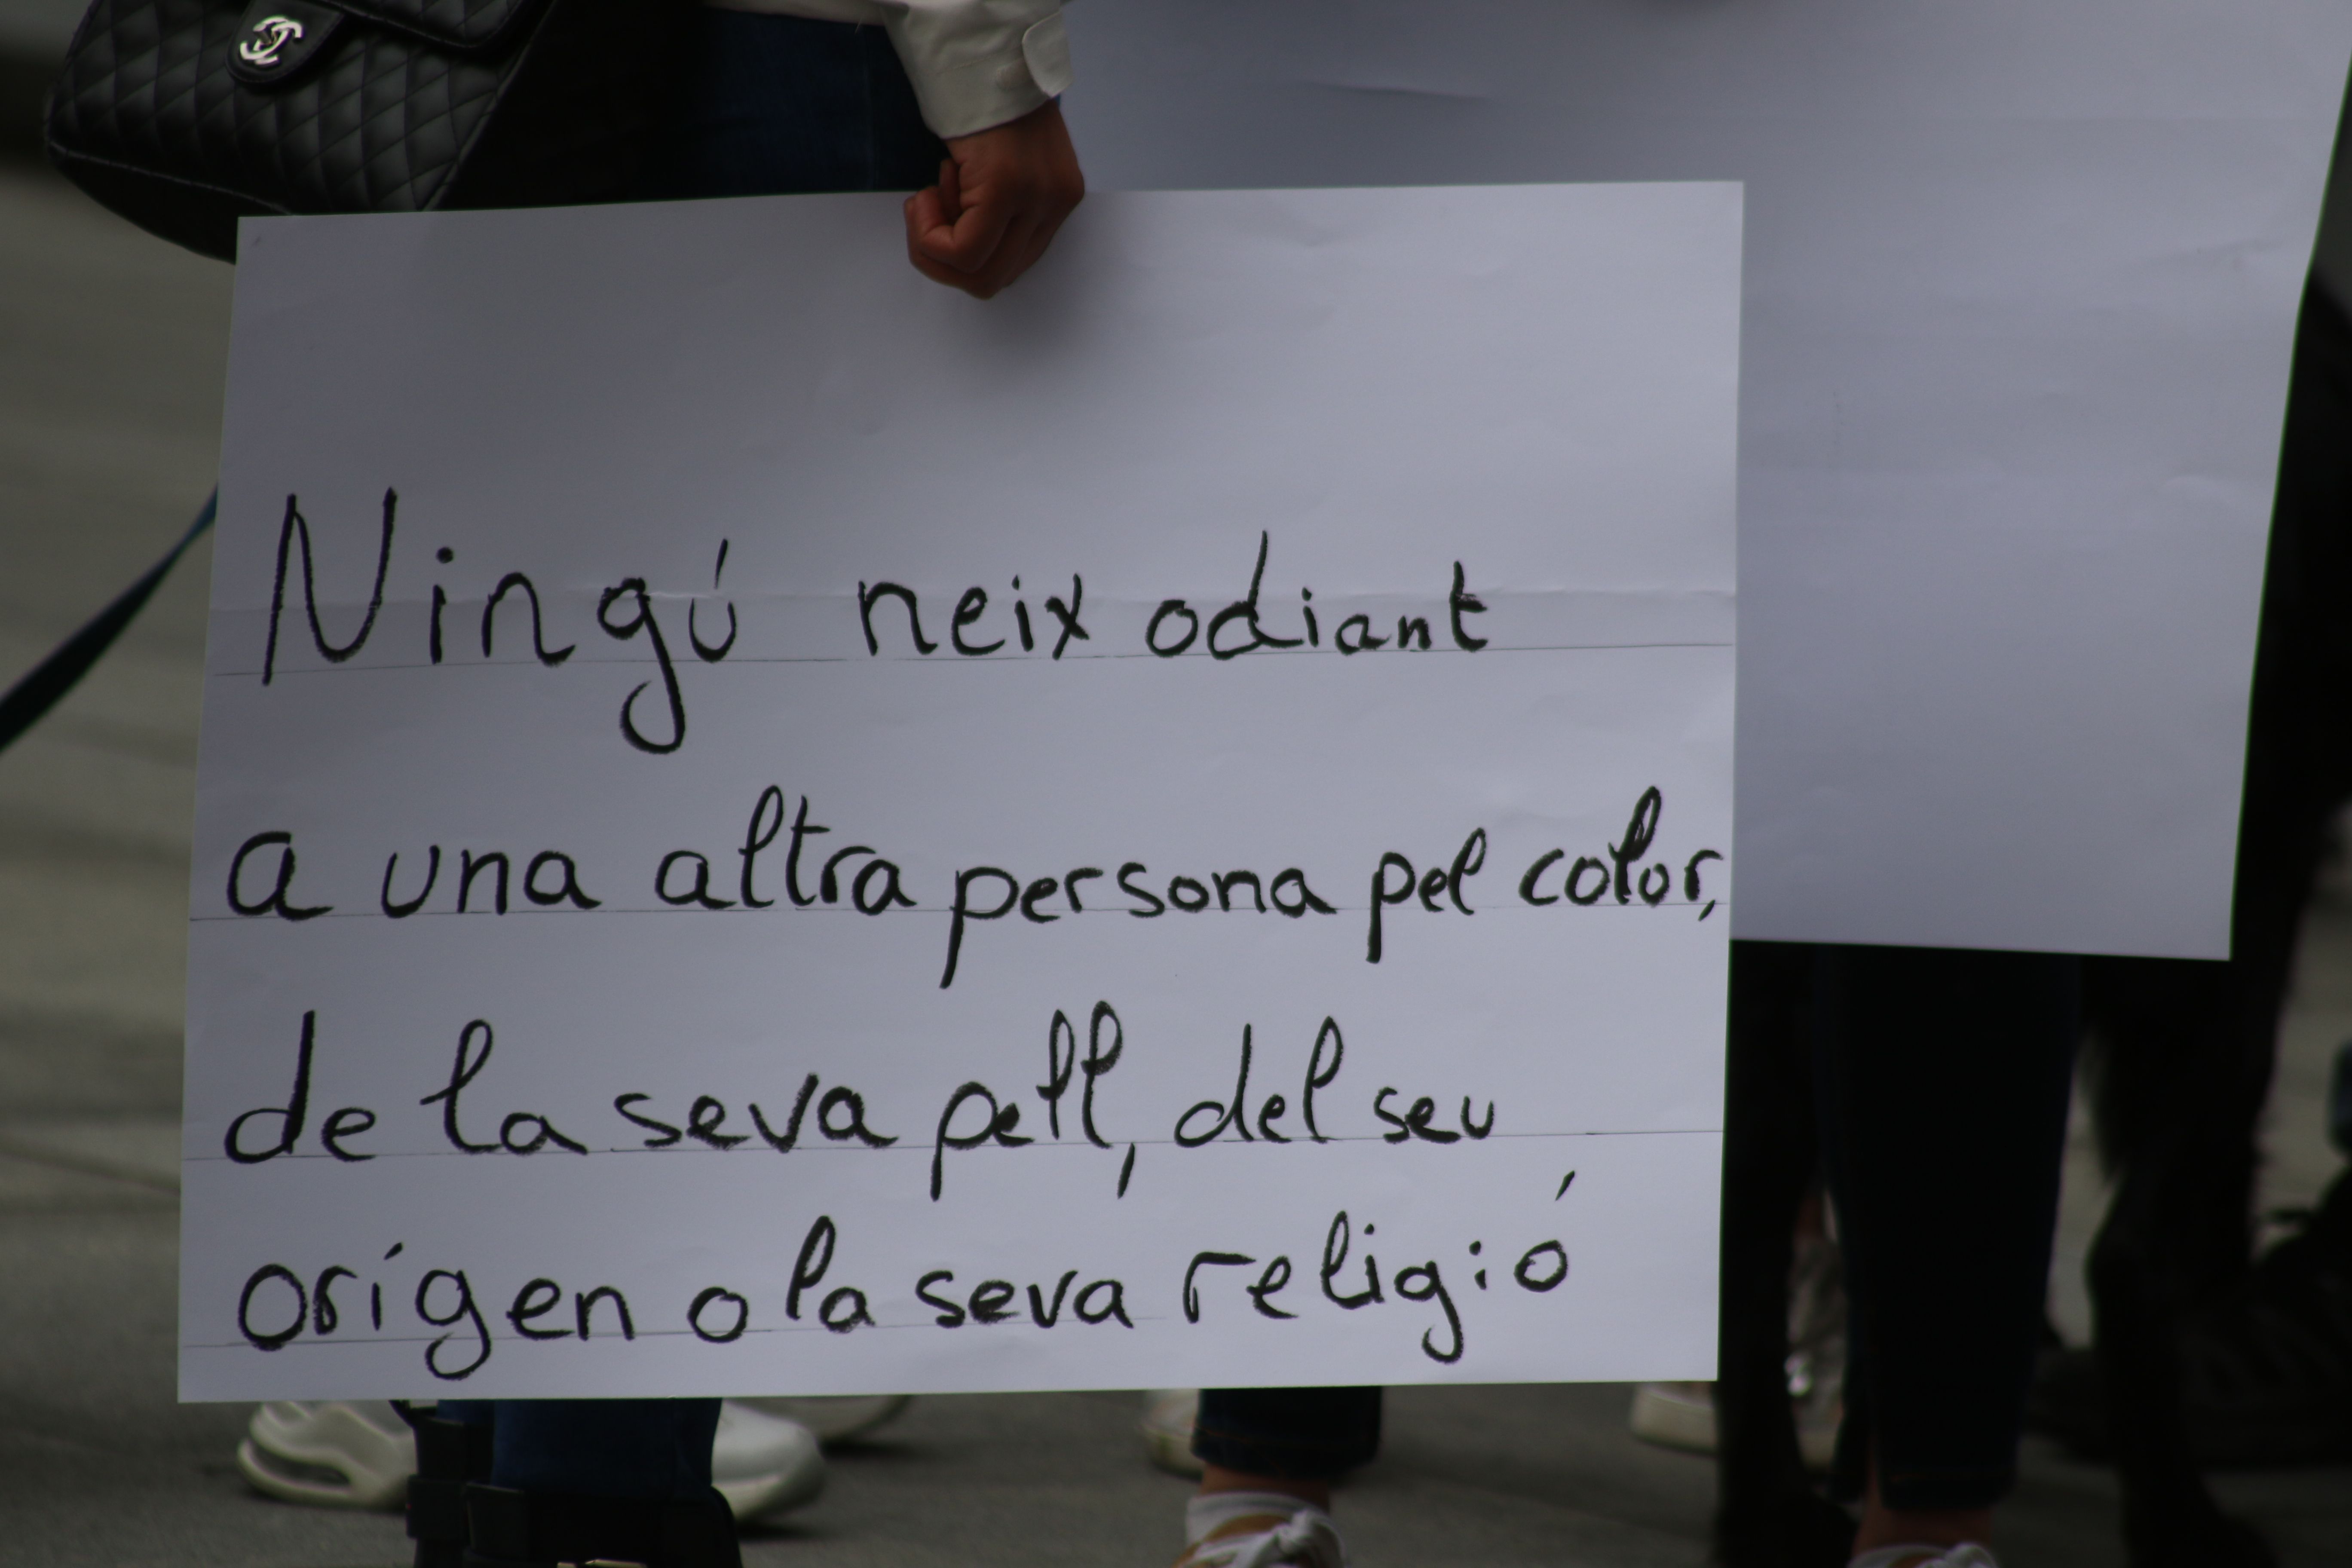 Ningú neix odiant
a una altra persona pel color,
de la seva pell, del seu
orígen o la seva religió